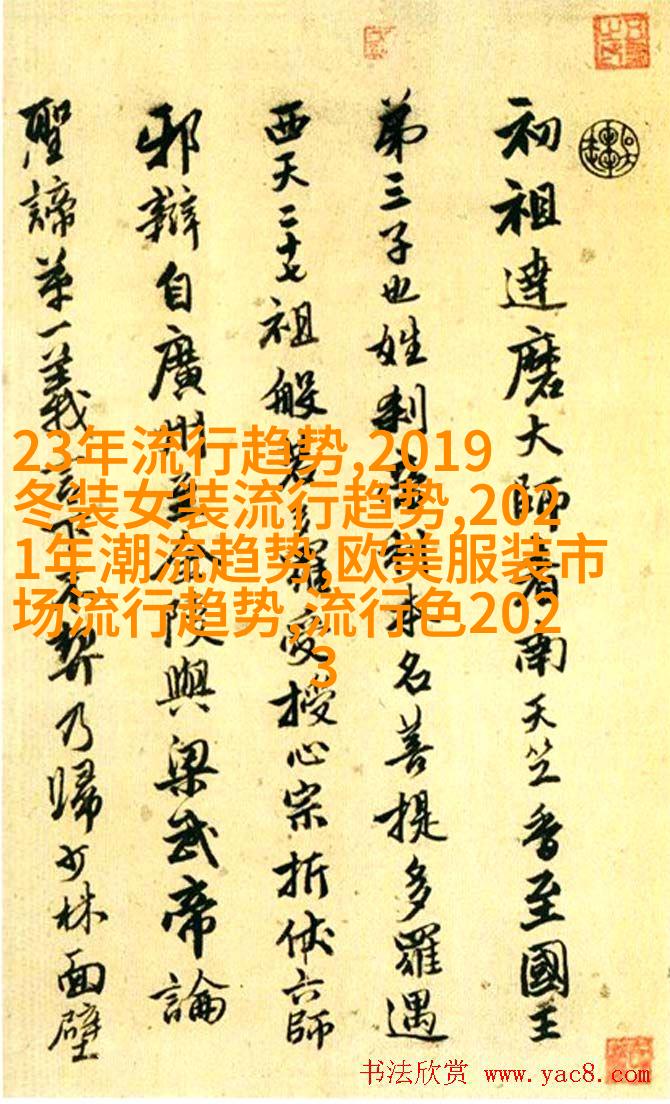 初祖達磨大師者南天竺香至國王
弟三子也姓刹本名菩提多羅遇
西天二十七祖般若多羅受授心宗折伏六師
邪辯自廣州至金陵與梁武帝論
聖諦苐一義言下不契乃歸少林面壁
23年流行趋势,2019
冬装女装流行趋势,202
1年潮流趋势,欧美服装市
场流行趋势,流行色202
3
书法欣赏 www.yac8.com